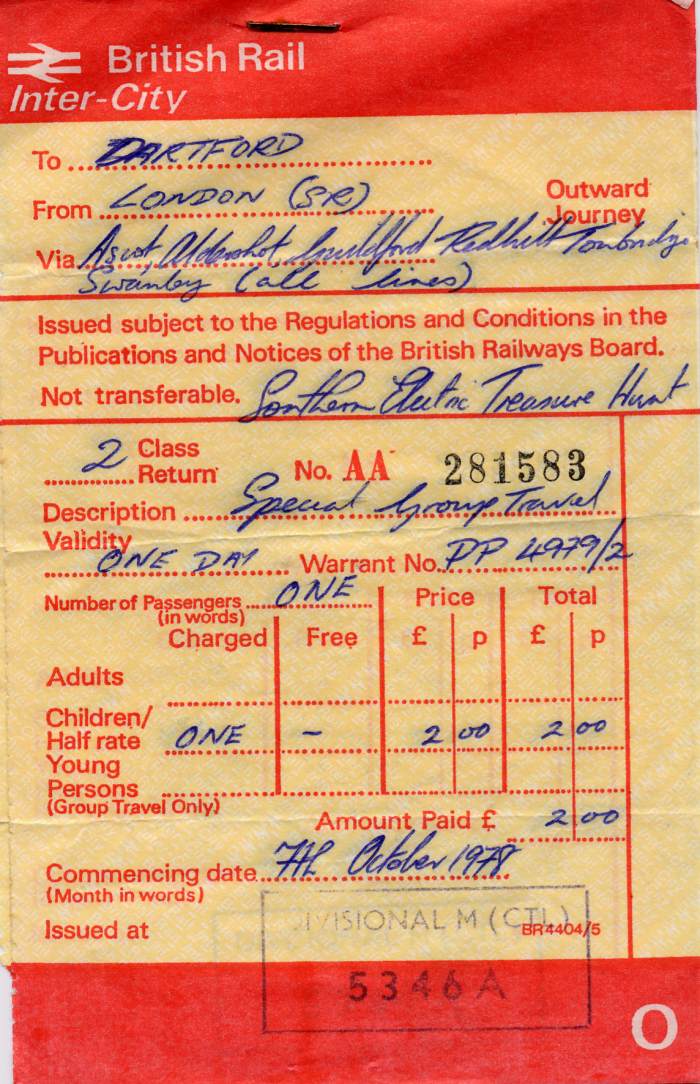 British Rail
Inter-City
To DARTFORD
From LONDON (SR)
Outward Journey
Via Ascot, Aldershot, Guildford Redhill Tonbridge
Swanley (all lines)
Issued subject to the Regulations and Conditions in the
Publications and Notices of the British Railways Board.
Not transferable. Southern Electric Treasure Hunt
2 Class
Return
No. AA 281583
Description Special Group Travel
Validity
ONE DAY Warrant No. PP 4979/2
Number of Passengers ONE Price Total
(in words)
Charged Free £ p £ p
Adults
Children/
Half rate ONE – 2 00 2 00
Young
Persons
(Group Travel Only)
Amount Paid £ 2 00
Commencing date 7th October 1978
(Month in words)
Issued at
DIVISIONAL M (CTL)
BR4404/5
5346A
O